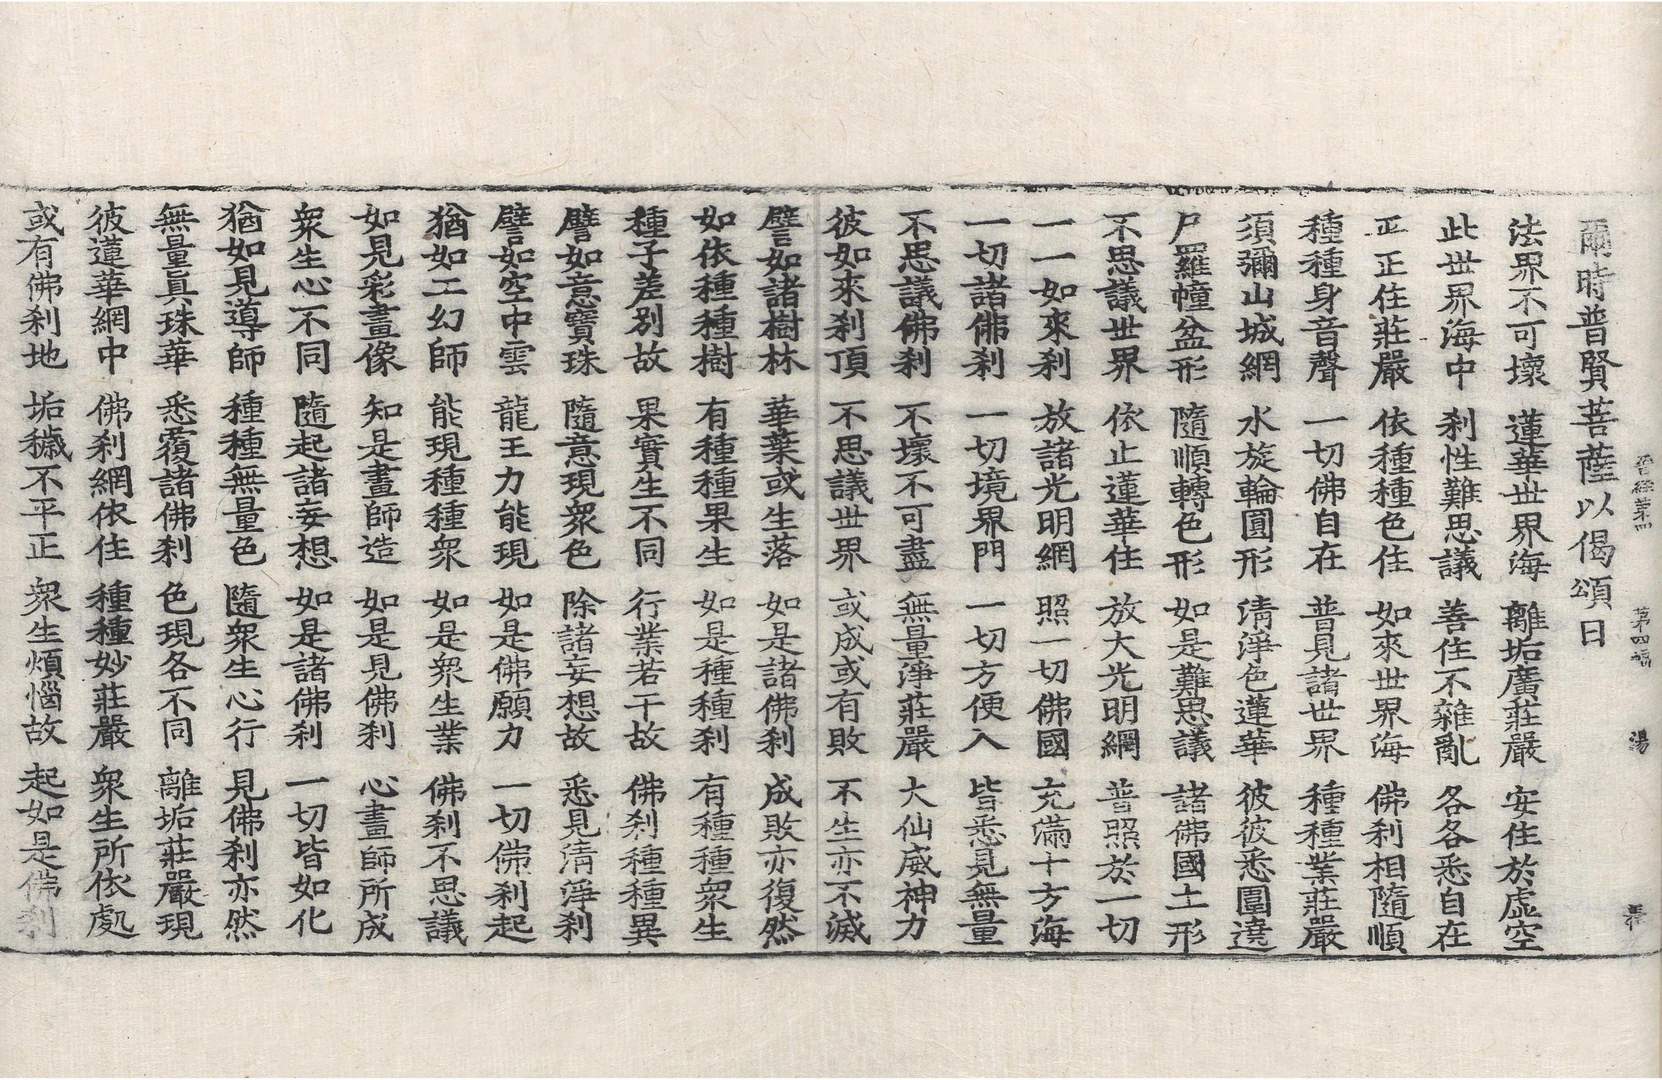 晉經第四 第四張 湯
爾時普賢菩薩以偈頌曰
法界不可壞 蓮華世界海 離垢廣莊嚴 安住於虛空
此世界海中 刹性難思議 善住不雜亂 各各悉自在
正正住莊嚴 依種種色住 如來世界海 佛刹相隨順
種種身音聲 一切佛自在 普見諸世界 種種業莊嚴
須彌山城網 水旋輪圓形 清淨色蓮華 彼彼悉圍遶
尸羅幢盆形 隨順轉色形 如是難思議 諸佛國土形
不思議世界 依止蓮華住 放大光明網 普照於一切
一一如來刹 放諸光明網 照一切佛國 充滿十方海
一切諸佛刹 一切境界門 一切方便入 皆悉見無量
不思議佛刹 不壞不可盡 無量淨莊嚴 大仙威神力
彼如來刹頂 不思議世界 或成或有敗 不生亦不滅
譬如諸樹林 華葉或生落 如是諸佛刹 成敗亦復然
如依種種樹 有種種果生 如是種種刹 有種種衆生
種子差別故 果實生不同 行業若干故 佛刹種種異
譬如意寶珠 隨意現衆色 除諸妄想故 悉見清淨刹
譬如空中雲 龍王力能現 如是佛願力 一切佛刹起
猶如工幻師 能現種種衆 如是衆生業 佛刹不思議
如見彩畫像 知是畫師造 如是見佛刹 心畫師所成
衆生心不同 隨起諸妄想 如是諸佛刹 一切皆如化
猶如見導師 種種無量色 隨衆生心行 見佛刹亦然
無量眞珠華 悉覆諸佛刹 色現各不同 離垢莊嚴現
彼蓮華網中 佛刹網依住 種種妙莊嚴 衆生所依處
或有佛刹地 垢穢不平正 衆生煩惱故 起如是佛刹